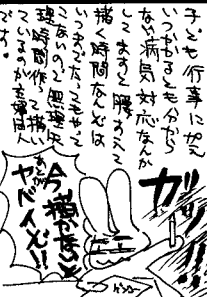 子ども行事に加え
いつかかるとも分から
ない病気対応なんか
してますと腰すえて
描く時間なんぞは
いつまでたってもやって
こないので無理に
理時間作って描い
ているのが主婦同人
です。
今描かないと
あとがヤベイんど!!
ガリガリ!!
ゲンコー